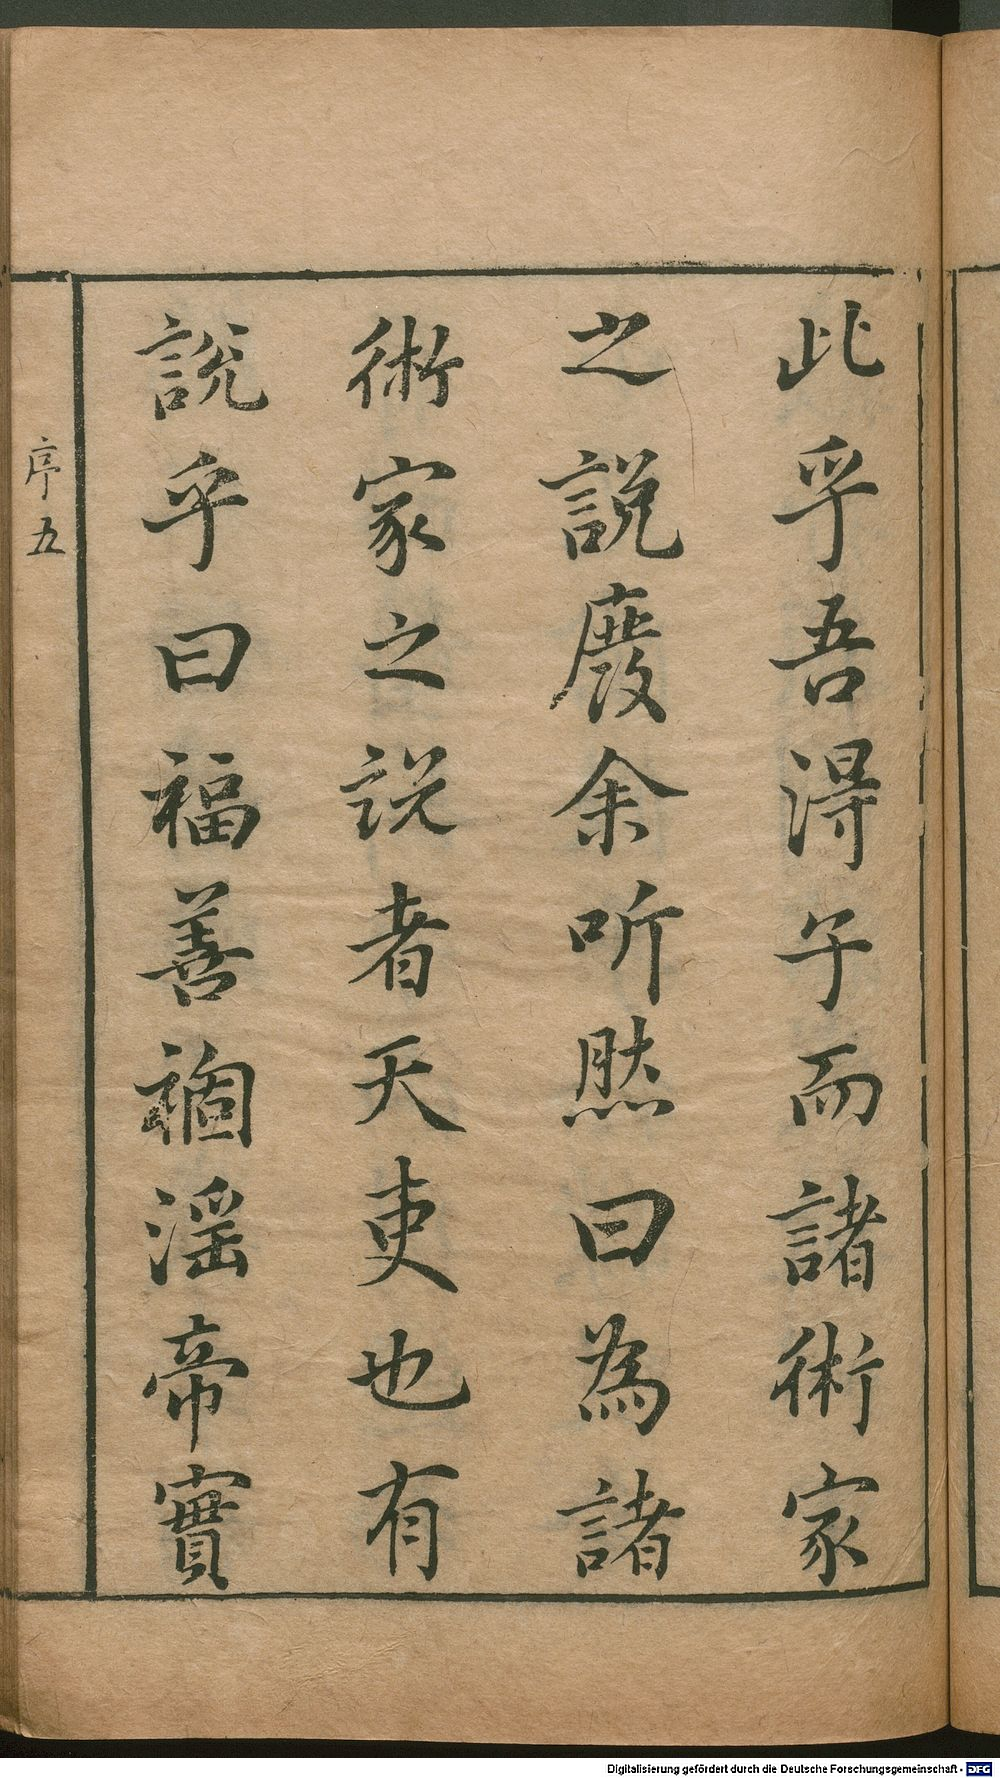 此乎吾得午而諸術家
之說廢余听然曰為諸
術家之説者天吏也有
說乎曰福善禍淫帝實
序五
Digitalisierung gefördert durch die Deutsche Forschungsgemeinschaft - DFG